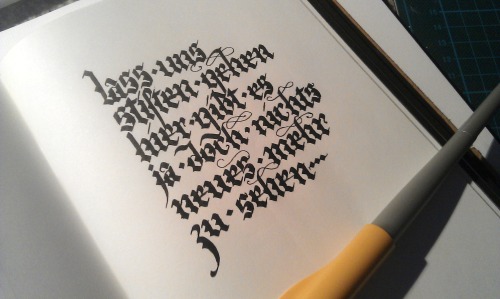 lass·uns
stiften·gehen
hier·gibt·es
ja·doch·nichts
neues·mehr
zu·sehen...